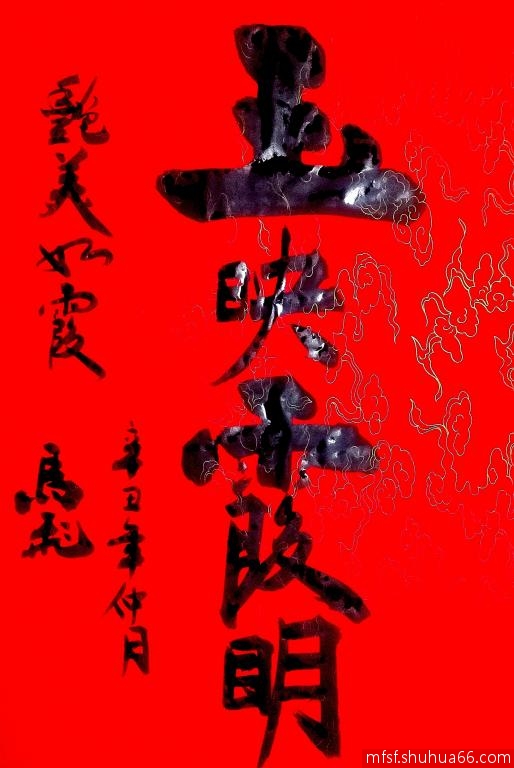 玉映霞明
艷美如霞
辛丑年仲月
馬
mfsf.shuhua66.com